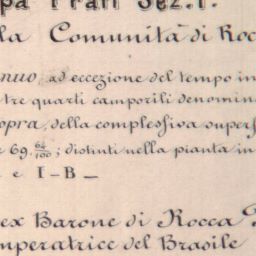 pa Frati Sez. I.
la Comunità di Roc
nuo, ad eccezione del tempo in
tre quarti camporili denomin
opra, della complessiva supers
69. 64/100; distinti nella pianta in
e I-B —
ex Barone di Rocca P
mperatrice del Brasile